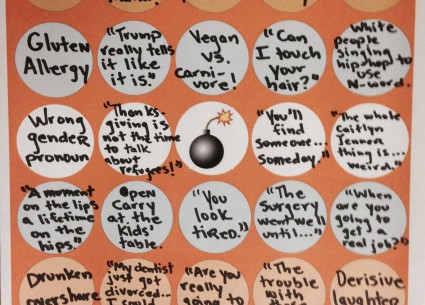 Gluten
Allergy
"Trump
really tells
it like
it is."
Vegan
vs.
Carni-
vore!
"Can
I touch
Your
hair?"
White
people
singing
hip hop to
use
N-word.
Wrong
gender
pronoun
"Thanks-
giving is
not the time
to talk
about
refugees!"
"You'll
find
someone...
someday."
"The whole
Caitlyn
Jenner
thing is...
weird."
"A moment
on the lips
a lifetime
on the
hips."
Open
Carry
at the
kids'
table.
"You
look
tired."
"The
Surgery
went well
until..."
"When
are you
going to
get a
real job?"
Drunken
overshare
"My dentist
just got
divorced...
I could
"Are you
really
going to
"The
trouble
with
Derisive
laughter